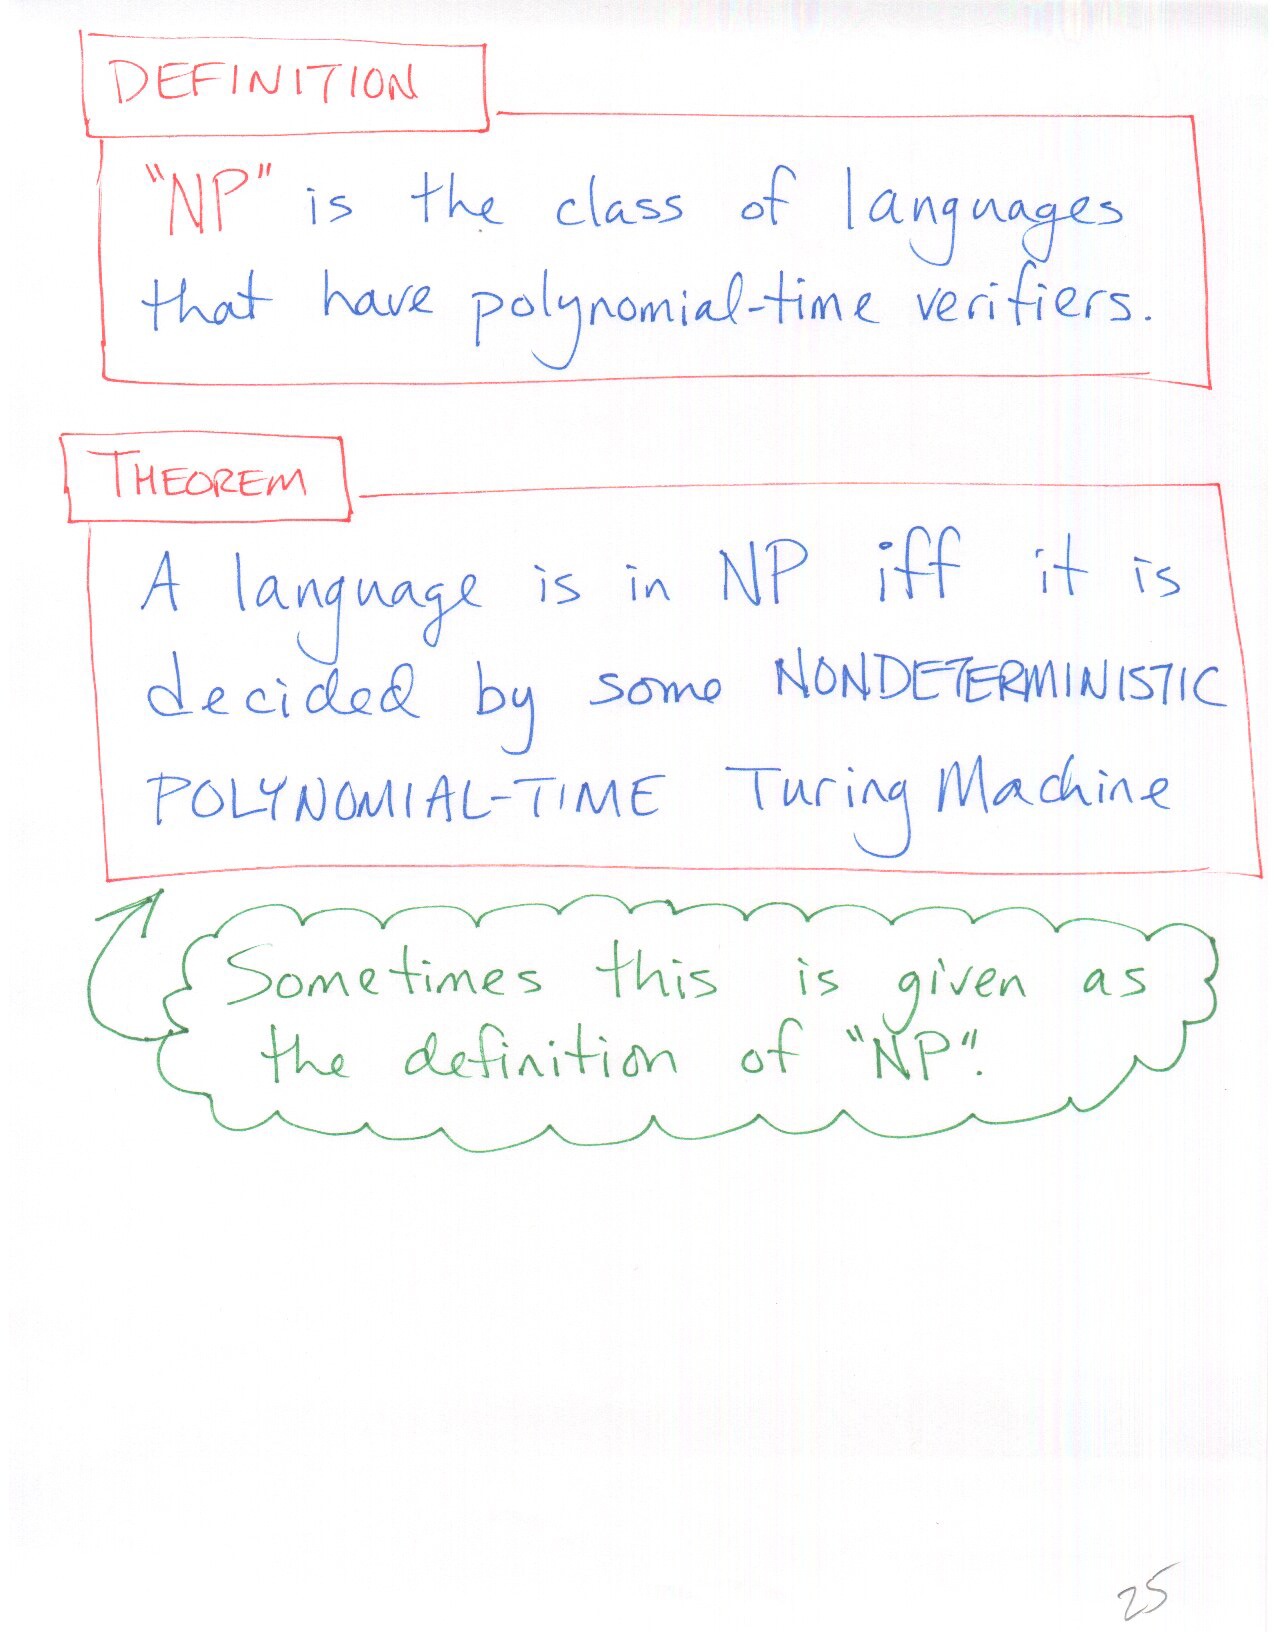 DEFINITION
"NP" is the class of languages
that have polynomial-time verifiers.
THEOREM
A language is in NP iff it is
decided by some NONDETERMINISTIC
POLYNOMIAL-TIME Turing Machine
Sometimes this is given as
the definition of "NP".
25